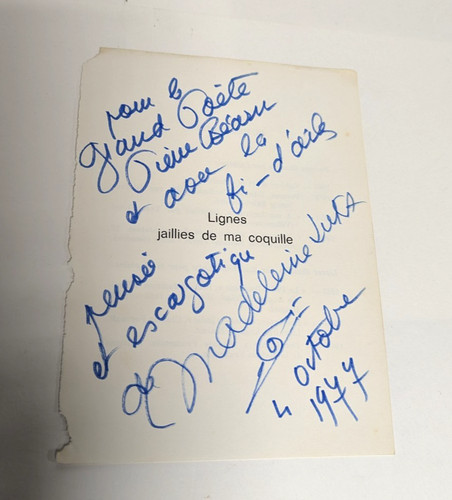 pour le
grand Poète
Pierre Béarn
et avec la
fi-d'aile
Lignes
jaillies de ma coquille
pensée
et escargotique
de Madeleine LUKA
4 octobre
1977